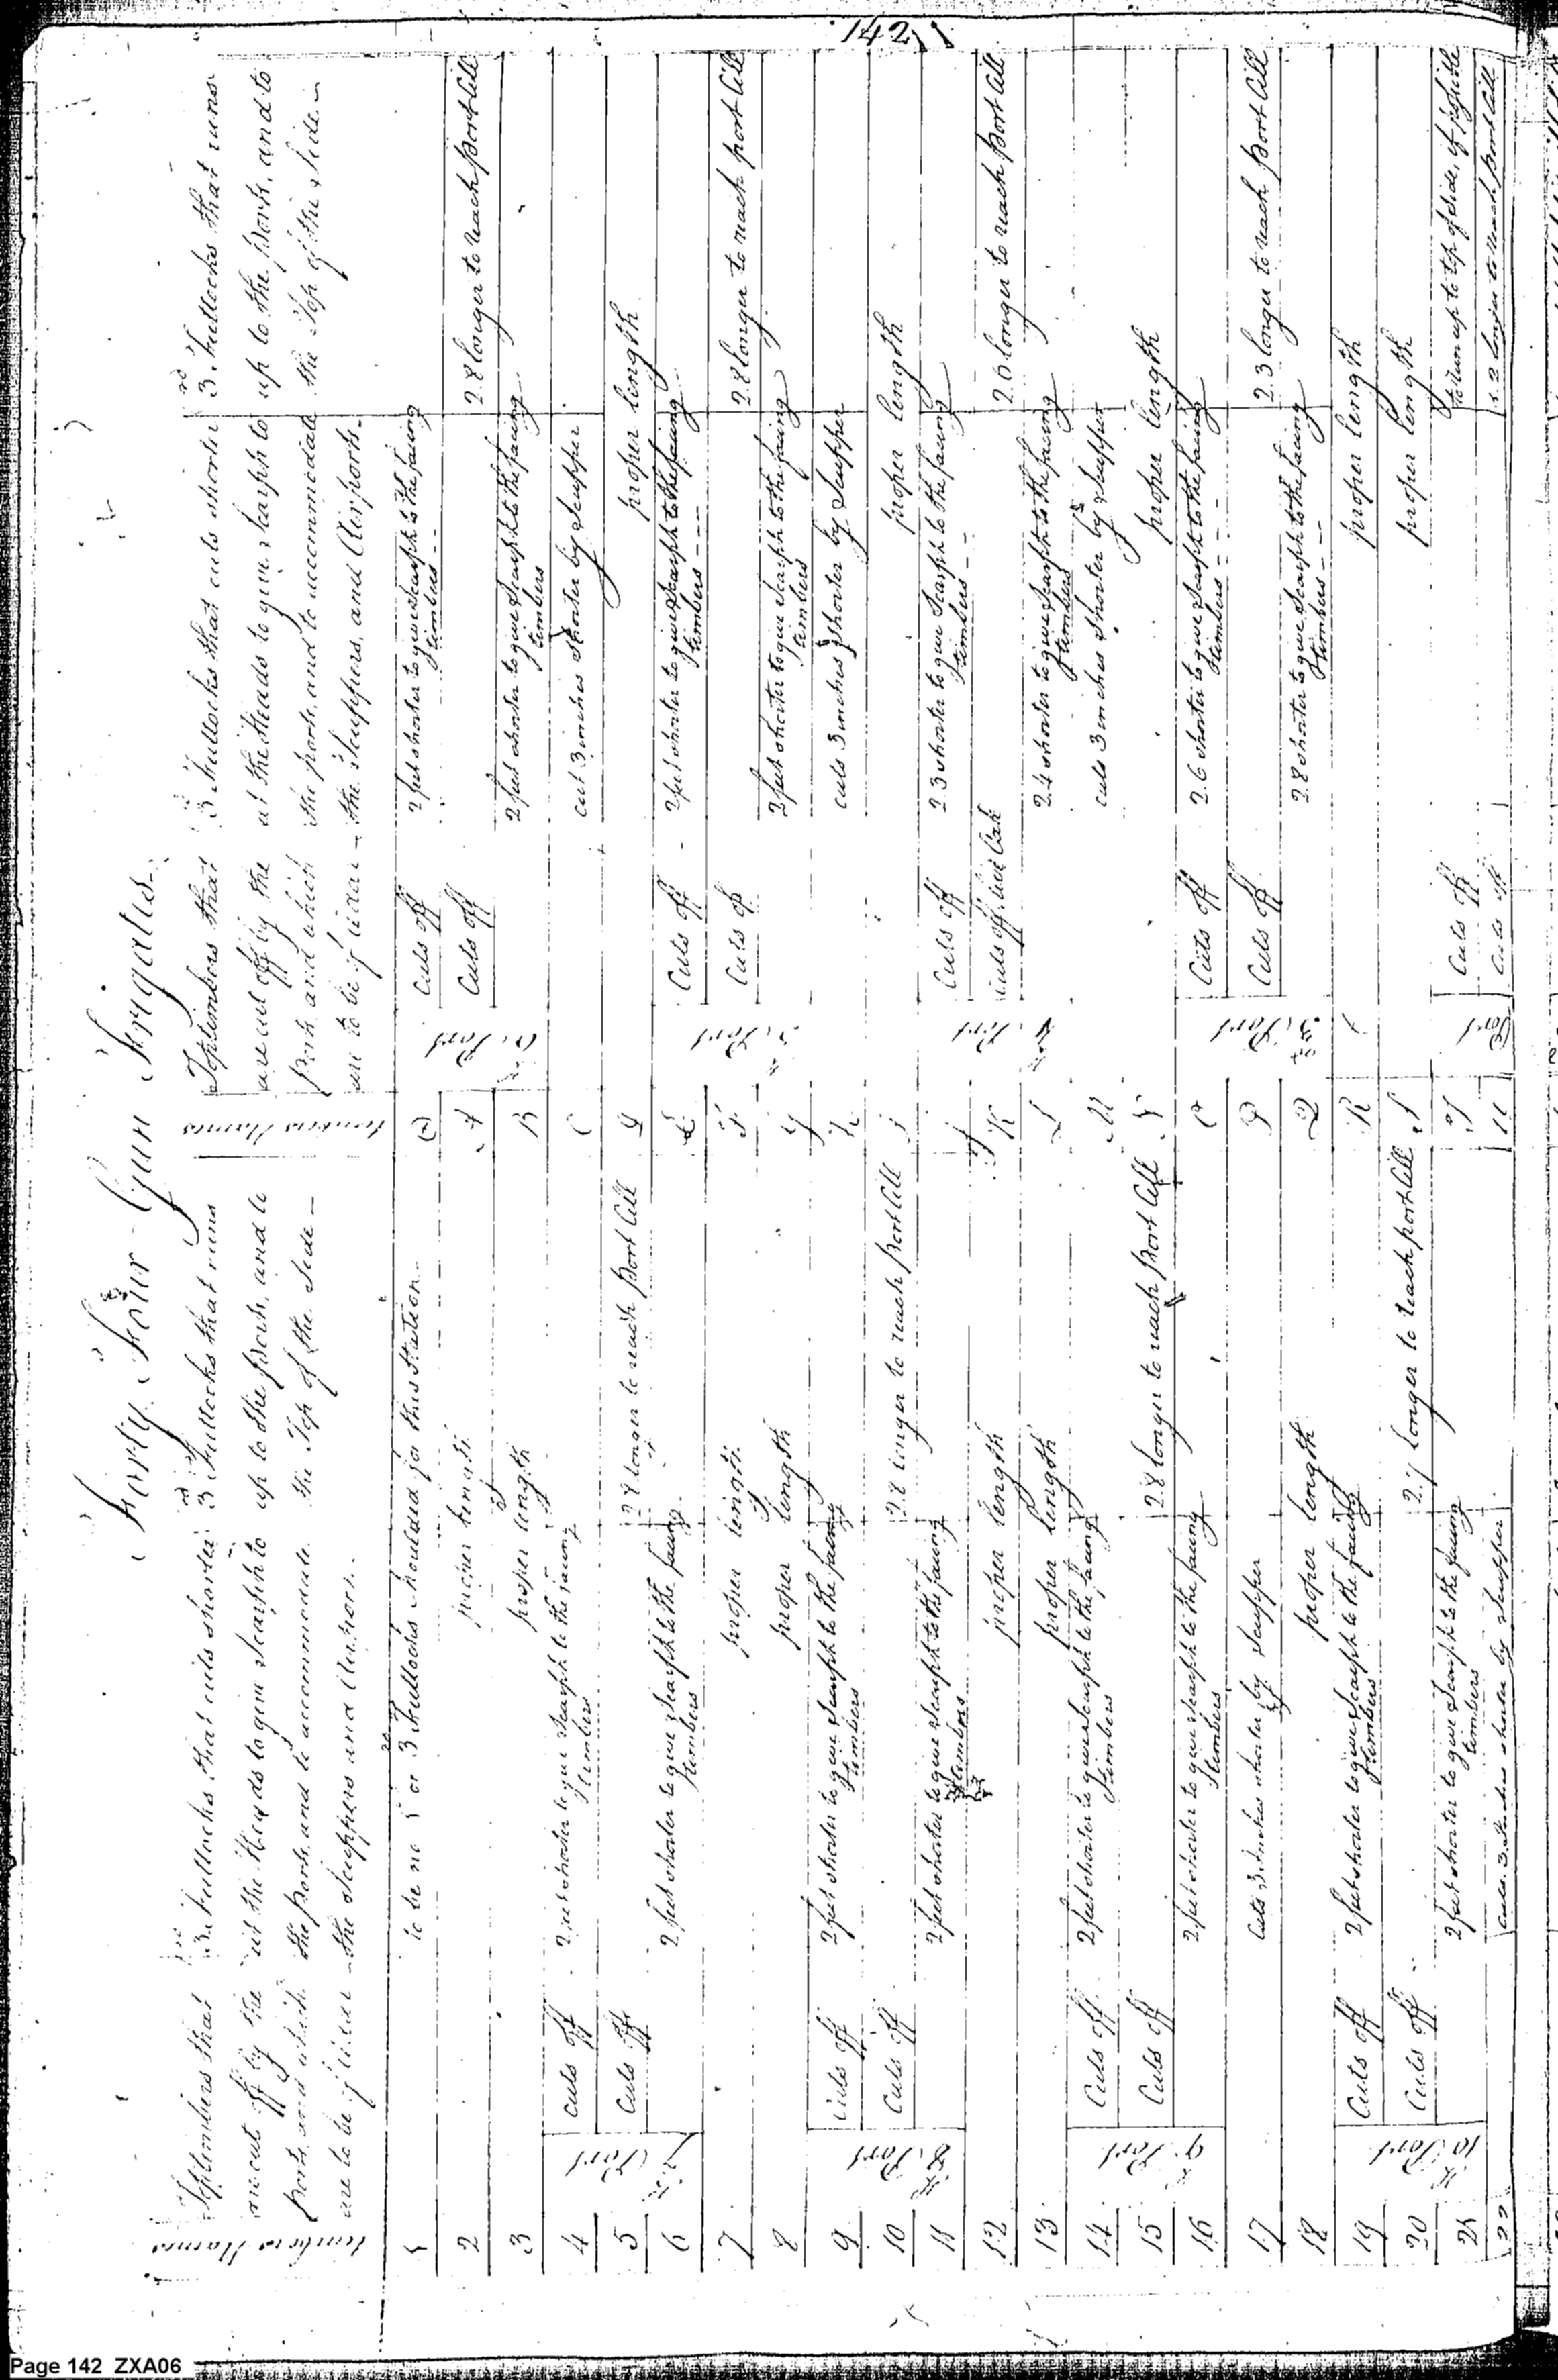 142
Forty Four Gun Frigates
timbers Names
Toptimbers that
are cut off by the
ports and which
are to be of cedar
3rd futtocks that cuts shorter
at the Heads to give scarph to
the ports, and to accommodate
the scuppers and Airports.
3rd futtocks that runs
up to the ports, and to
the Top of the Side
timbers Names
Toptimbers that
are cut off by the
ports and which
are to be of cedar
3rd futtocks that cuts shorter
at the Heads to give scarph to
the ports, and to accommodate
the scuppers, and Airports.
3rd futtocks that runs
up to the ports, and to
the Top of the side
1 to be no 5 or 3rd futtocks moulded for this station
2 proper length
3 proper length
4 Cuts off 2 feet shorter to give scarph to the facing timbers
5 Cuts off 2.8 longer to reach port Cill
6 2 feet shorter to give scarph to the facing timbers
7th Port
7 proper length
8 proper length
9 Cuts off 2 feet shorter to give scarph to the facing timbers
10 Cuts off 2.8 longer to reach port Cill
11 2 feet shorter to give scarph to the facing timbers
8th Port
12 proper length
13 proper length
14 Cuts off 2 feet shorter to give scarph to the facing timbers
15 Cuts off 2.8 longer to reach port Cill
16 2 feet shorter to give scarph to the facing timbers
9th Port
17 Cuts 3 inches shorter by scupper
18 proper length
19 Cuts off 2 feet shorter to give scarph to the facing timbers
20 Cuts off 2.7 longer to reach port Cill
21 2 feet shorter to give scarph to the facing timbers
10th Port
22 Cuts 3 inches shorter by scupper
Cuts off 2 feet shorter to give scarph to the facing timbers
A Cuts off 2.8 longer to reach port Cill
B 2 feet shorter to give scarph to the facing timbers
Port
C cuts 3 inches shorter by scupper
D proper length
E Cuts off 2 feet shorter to give scarph to the facing timbers
F Cuts off 2.8 longer to reach port Cill
G 2 feet shorter to give scarph to the facing timbers
Port
H cuts 3 inches shorter by scupper
I proper length
J Cuts off 2.3 shorter to give scarph to the facing timbers
K Cuts off, live Oak 2.6 longer to reach port Cill
L 2.4 shorter to give scarph to the facing timbers
Port
M cuts 3 inches shorter by scupper
N proper length
O Cuts off 2.6 shorter to give scarph to the facing timbers
P Cuts off 2.3 longer to reach port Cill
Q 2.8 shorter to give scarph to the facing timbers
Port
R proper length
S proper length
T Cuts off to run up to top of side, if possible
U Cuts off 1.2 longer to reach port Cill
Port
Page 142 ZXA06